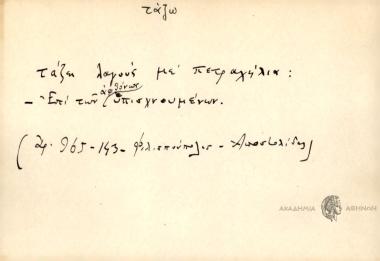 τάζω
τάζει λαγούς με' πετραχήλια:
ἀφθόνως
– Ἐπί τῶν ὑπισχνουμένων.
(ἀρ. 965 - 143 - Φιλιππούπολις - Ἀποστολίδης)
ΑΚΑΔΗΜΙΑ ΑΘΗΝΩΝ